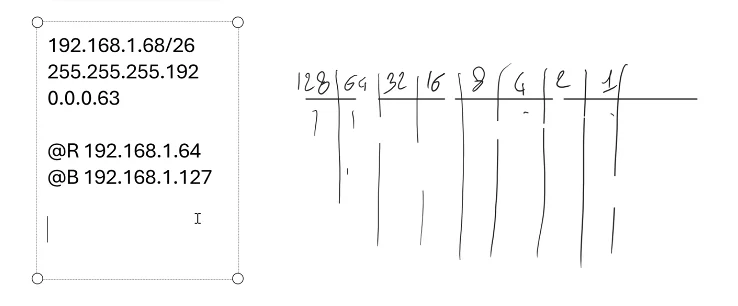 192.168.1.68/26
255.255.255.192
0.0.0.63
@R 192.168.1.64
@B 192.168.1.127
128 64 32 16 8 4 2 1
1 1